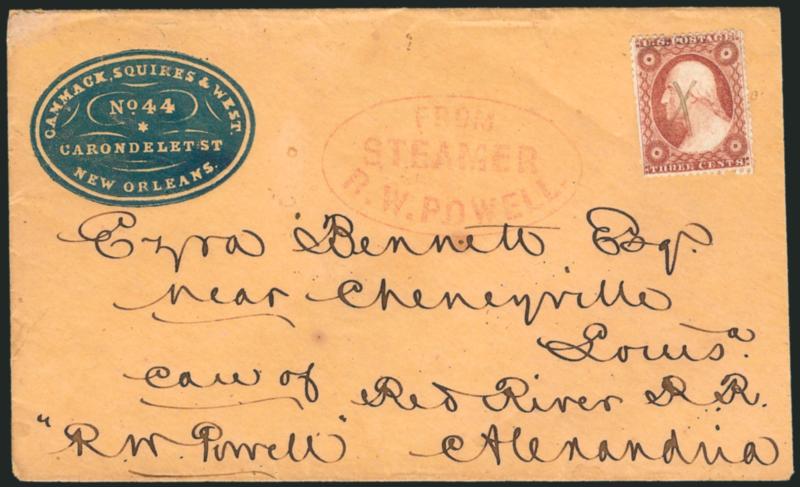 CAMMACK, SQUIRES & WEST.
No 44
CARONDELET ST
NEW ORLEANS.
FROM
STEAMER
R. W. POWELL.
U.S. POSTAGE
THREE CENTS
X
Ezra Bennett Esq.
near Cheneyville
Louisa.
care of Red River R. R.
"R W. Powell" Alexandria